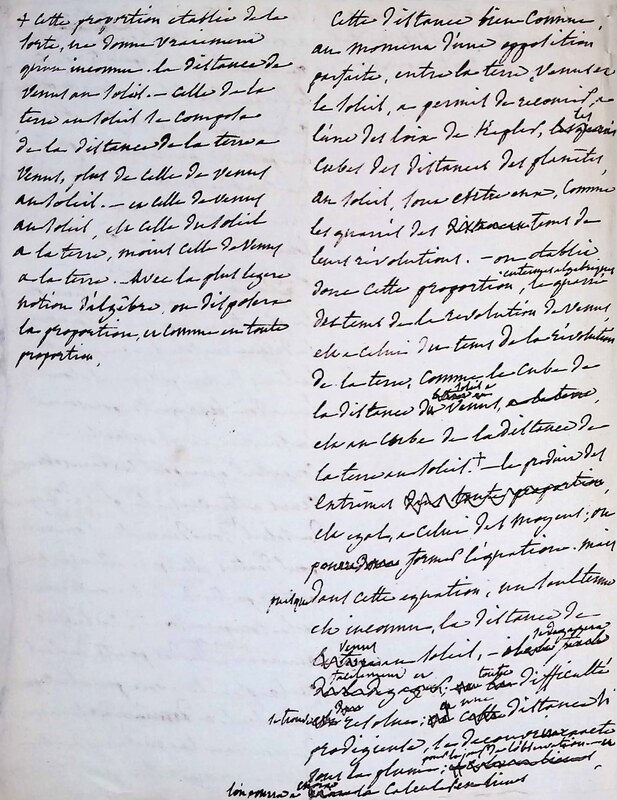 + Cette proportion etablie de la
sorte, ne donne vraiement
qu'une inconnue. la distance de
Venus au soleil. — Celle de la
terre au soleil se compose
de la distance de la terre a
Venus, plus de celle de Venus
au soleil. — et celle de Venus
au soleil, de celle du soleil
a la terre, moins celle de Venus
a la terre. — Avec la plus legere
notion d'algèbre, on disposera
la proportion, et comme en toute
proportion,
Cette distance bien connue,
au moment d'une opposition
parfaite, entre la terre, Venus et
le soleil, a permit de recourir, a
l'une des loix de Kepler, les
Cubes des distances des planètes,
au soleil, sont entre eux, comme
les quarrés des tems de
leurs révolutions. — on etablit
en termes algebriques
donc cette proportion, le quarré
des tems de la revolution de Venus,
est a celui du tems de la révolution
de la terre, comme le cube de
la distance de Venus, au soleil
est au cube de la distance de
la terre au soleil. + — le produit des
extrêmes
est egal, a celui des moyens; on
pourra former l'équation. mais
puisque dans cette equation, un seul terme
est inconnu, la distance de
Venus au soleil, — se degagera
facilement et toute difficulté
se trouve resolue; distance si
prodigieuse, se decouvre
sous la plume;
l'on pourra encore la calculer